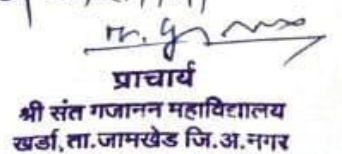 प्राचार्य
श्री संत गजानन महाविद्यालय
खर्डा, ता.जामखेड जि.अ.नगर